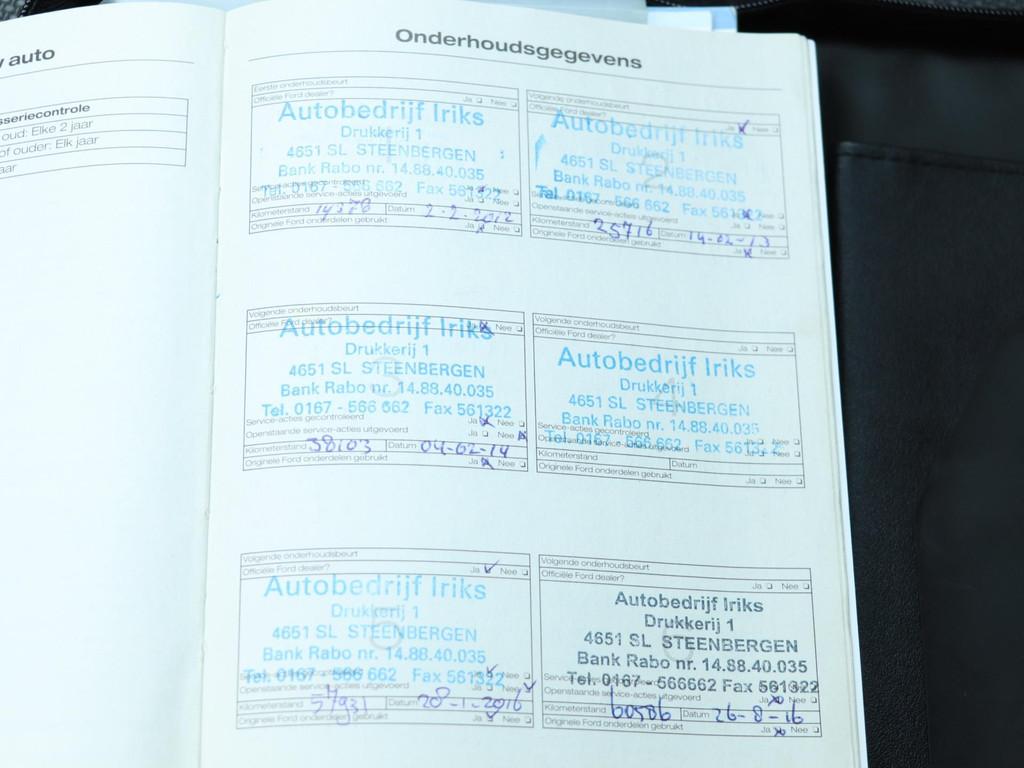 auto
sseriecontrole
oud: Elke 2 jaar
of ouder: Elk jaar
aar
Onderhoudsgegevens
Eerste onderhoudsbeurt
Officiële Ford dealer? Ja Nee
Autobedrijf Iriks
Drukkerij 1
4651 SL STEENBERGEN
Bank Rabo nr. 14.88.40.035
Tel. 0167 - 566 662 Fax 561322
Openstaande service-acties uitgevoerd
Kilometerstand Datum 2-2-2012
Originele Ford onderdelen gebruikt Ja Nee
Volgende onderhoudsbeurt
Officiële Ford dealer? Ja Nee
Autobedrijf Iriks
Drukkerij 1
4651 SL STEENBERGEN
Bank Rabo nr. 14.88.40.035
Tel. 0167 - 566 662 Fax 561322
Openstaande service-acties uitgevoerd Nee
Kilometerstand 25716 Datum 14-02-13
Originele Ford onderdelen gebruikt Ja Nee
Volgende onderhoudsbeurt
Officiële Ford dealer? Nee
Autobedrijf Iriks
Drukkerij 1
3
4651 SL STEENBERGEN
Bank Rabo nr. 14.88.40.035
Tel. 0167 - 566 662 Fax 561322
Service-acties gecontroleerd Ja Nee
Openstaande service-acties uitgevoerd Ja Nee
Kilometerstand 38103 Datum 04-02-14
Originele Ford onderdelen gebruikt Ja Nee
Volgende onderhoudsbeurt
Officiële Ford dealer? Ja Nee
Autobedrijf Iriks
Drukkerij 1
4
4651 SL STEENBERGEN
Bank Rabo nr. 14.88.40.035
Service-acties gecontroleerd Ja Nee
Tel. 0167 - 566 662 Fax 561322
Openstaande service-acties uitgevoerd
Kilometerstand Datum
Originele Ford onderdelen gebruikt Ja Nee
Volgende onderhoudsbeurt
Officiële Ford dealer? Ja Nee
Autobedrijf Iriks
Drukkerij 1
5
4651 SL STEENBERGEN
Bank Rabo nr. 14.88.40.035
Tel. 0167 - 566 662 Fax 561322
Openstaande service-acties uitgevoerd Nee
Kilometerstand 57931 Datum 28-1-2016
Originele Ford onderdelen gebruikt Ja Nee
Volgende onderhoudsbeurt
Officiële Ford dealer? Ja Nee
Autobedrijf Iriks
Drukkerij 1
4651 SL STEENBERGEN
Bank Rabo nr. 14.88.40.035
Tel. 0167 - 566662 Fax 561322
Openstaande service-acties uitgevoerd Ja Nee
Kilometerstand 60586 Datum 26-8-16
Originele Ford onderdelen gebruikt Ja Nee